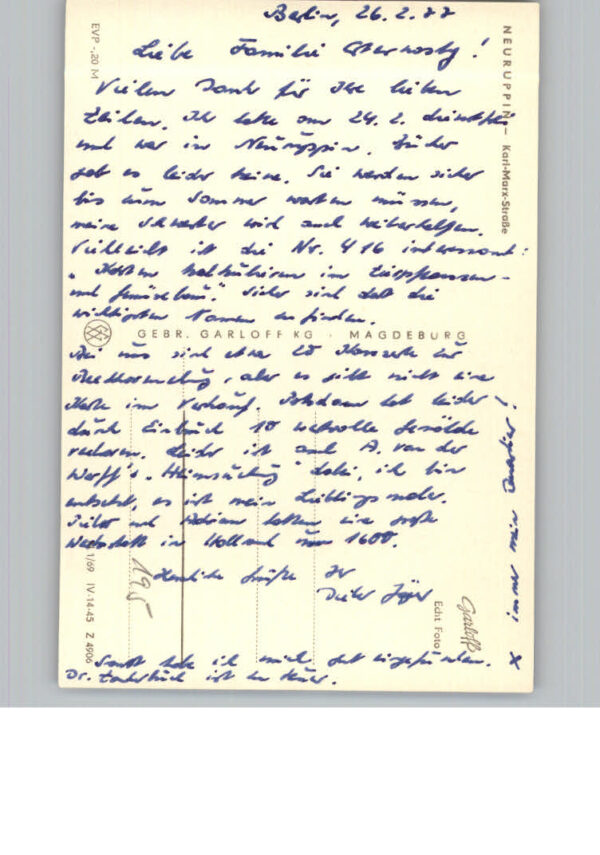 Berlin, 26.2.77
Liebe Familie !
Vielen Dank für Ihre lieben
Zeilen. Ich hatte am 24.2. dienstfrei
und war in Neuruppin. Bücher
gab es leider keine. Sie werden sicher
bis zum Sommer warten müssen,
meine Schwester wird auch weiterhelfen.
Vielleicht ist die Nr. 416 interessant:
"Kosten kalkulieren im Zierpflanzen-
und Gemüsebau." Sicher sind dort die
wichtigsten Namen zu finden.
GEBR. GARLOFF KG · MAGDEBURG
Bei uns sind etwa 20 Konzerte zur
, aber es gibt nicht eine
Karte im Verkauf. Potsdam hat leider
durch Einbruch 10 wertvolle Gemälde
verloren. Leider ist auch A. van der
Werff's "Heimsuchung" dabei, ich bin
entsetzt, es ist mein Lieblingsmaler.
Pieter und Adriaen hatten eine große
Werkstatt in Holland um 1600.
Herzliche Grüße Ihr
Dieter Jäger
195
Sonst habe ich mich gut eingefunden.
Dr. ist in
x immer
NEURUPPIN – Karl-Marx-Straße
EVP -,20 M
1/69 IV-14-45 Z 4906
Garloff
Echt Foto